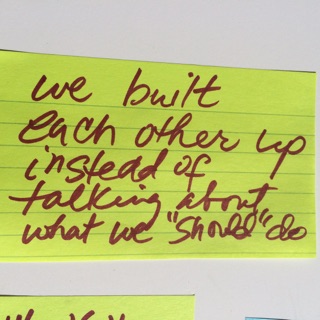 we built
each other up
instead of
talking about
what we "should" do